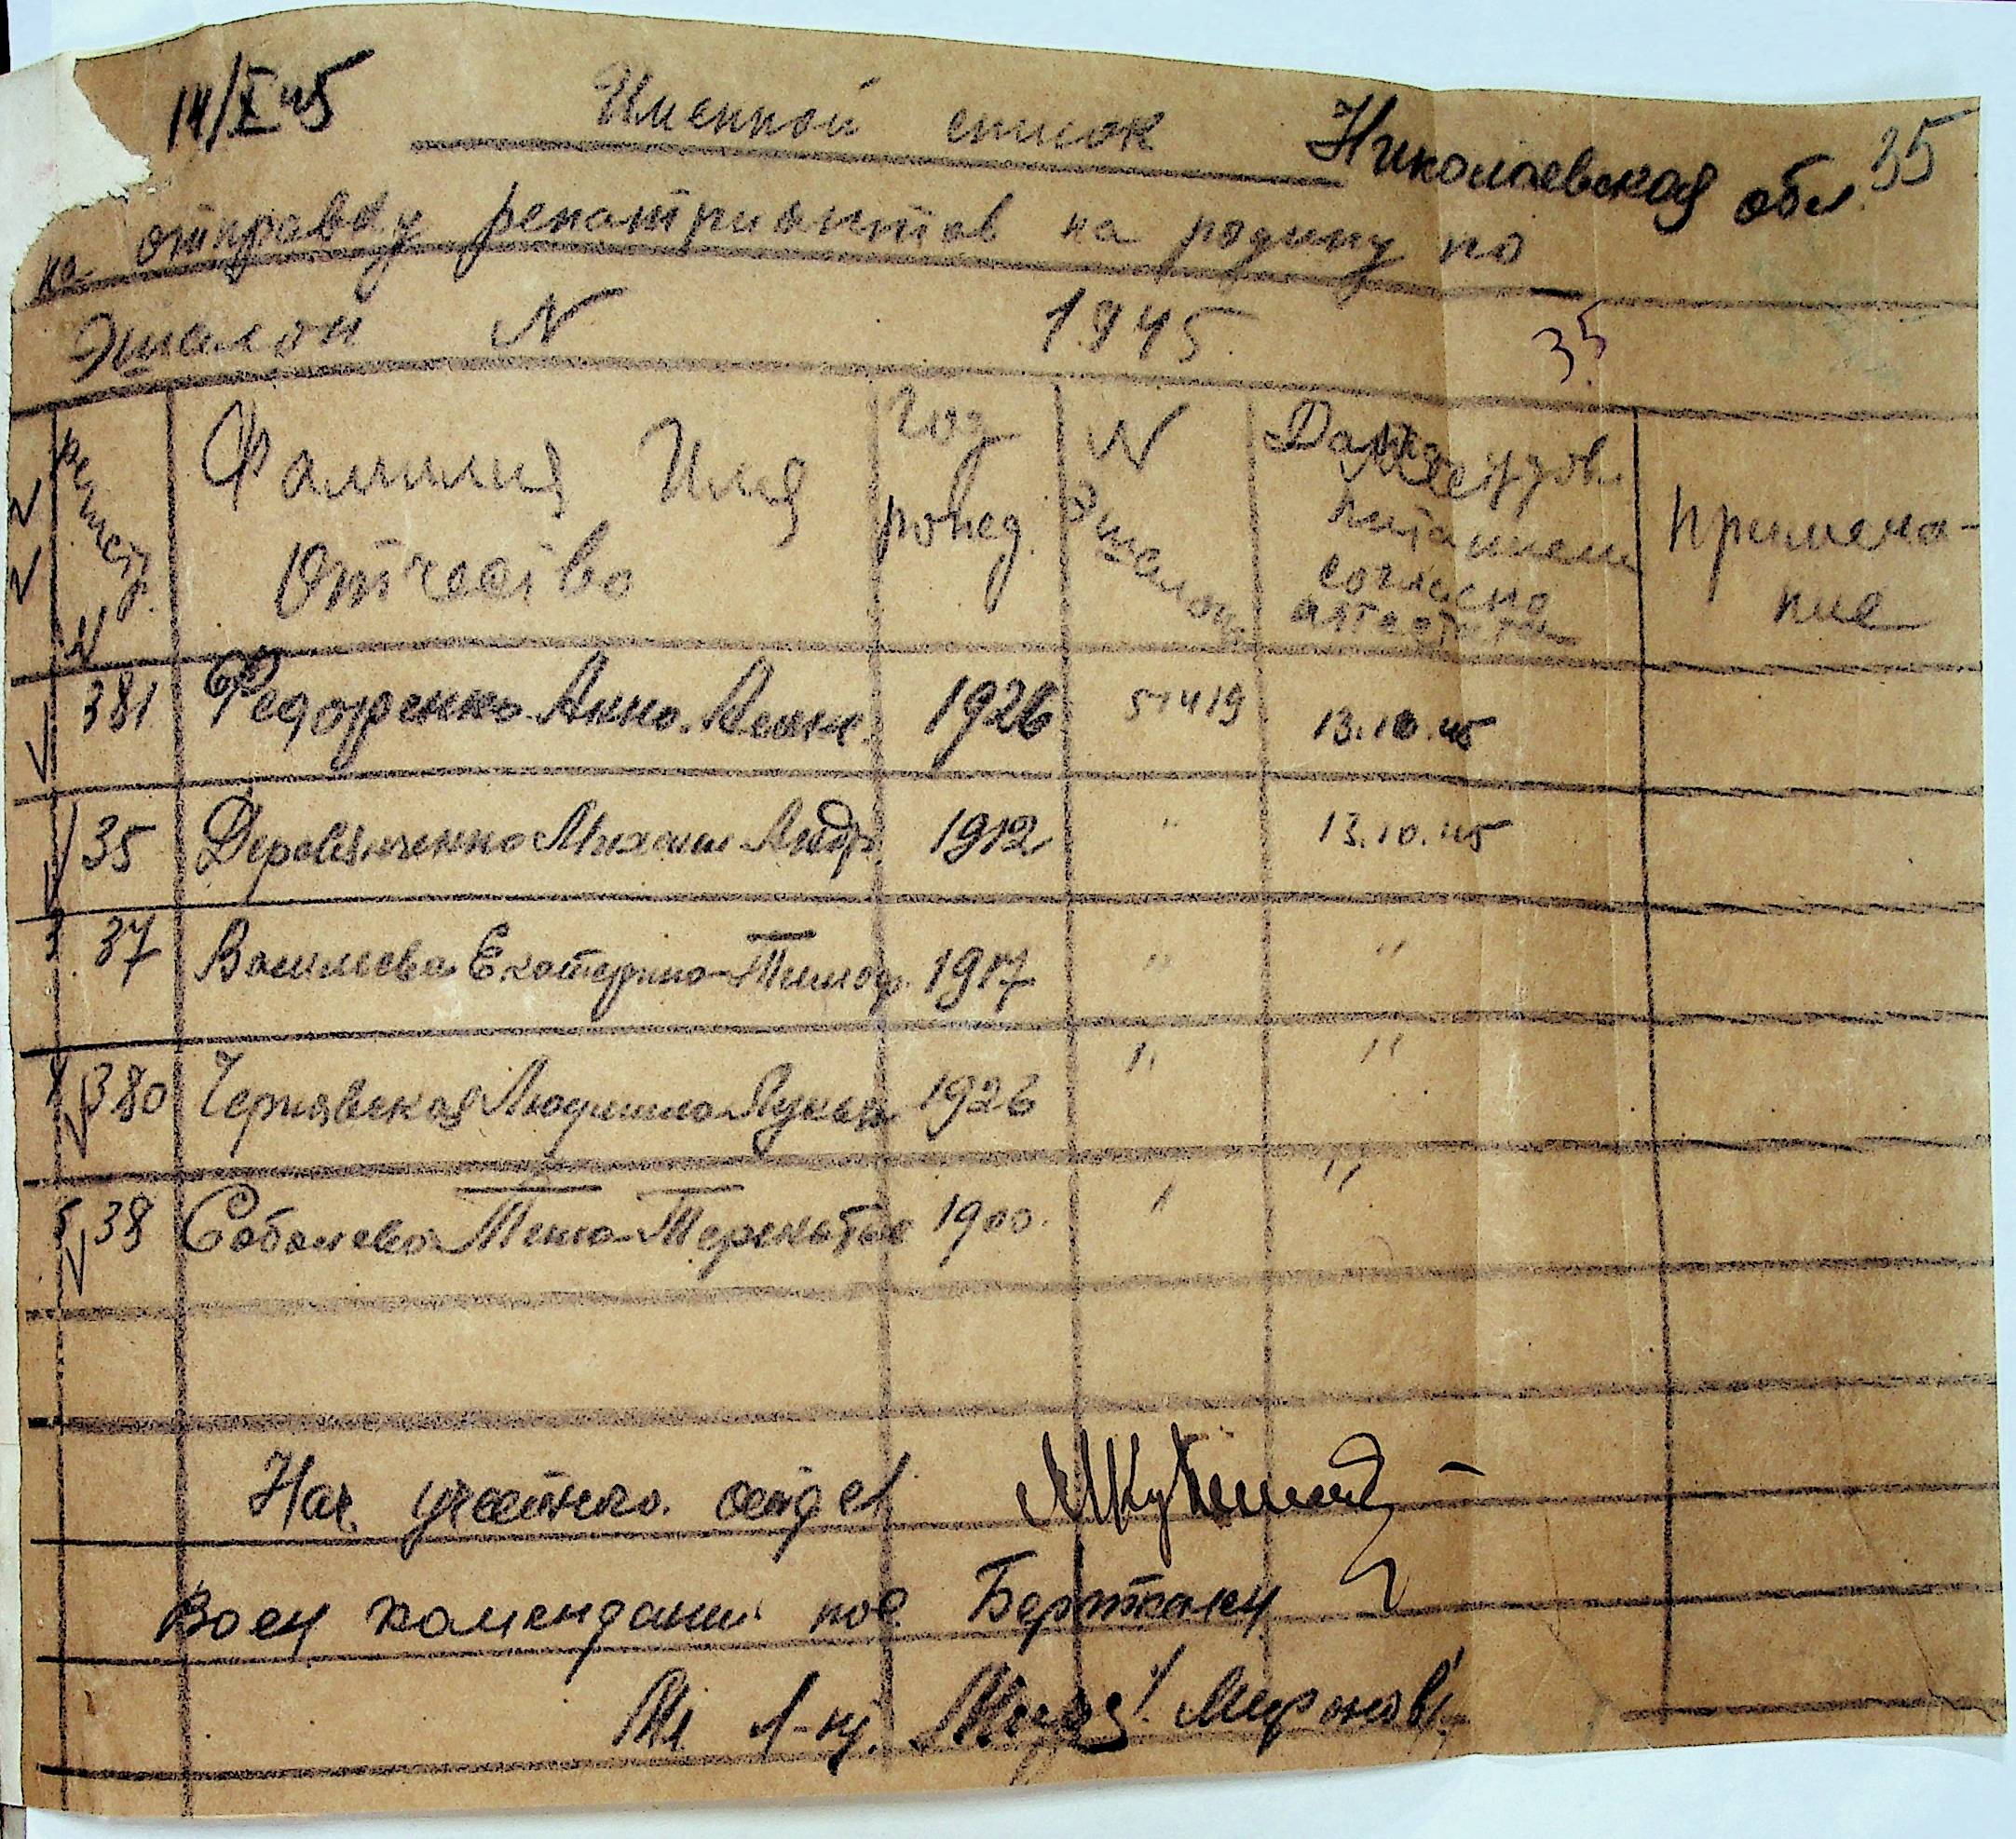 14/X 45
Именной список
Николаевская обл. 35
на отправку репатриантов на родину по
Эшалон N 1945
35
NN
регистр. N
Фамилия Имя Отчество
Год рожед.
N Эшалон
Дата
питанием согласно аттестата
Примечание
381 Федоренко Анна 1926 51419 13.10.45
35 Михаил Андр. 1912 " 13.10.45
3 37 Васильева Екатерина Тимоф. 1917 " "
380 Чернявская Людмила Лукян 1926 " "
5 38 Соболева 1900. " "
Нач. учетного отдел
Воен комендант пос
Мл л-т. /Миронов/